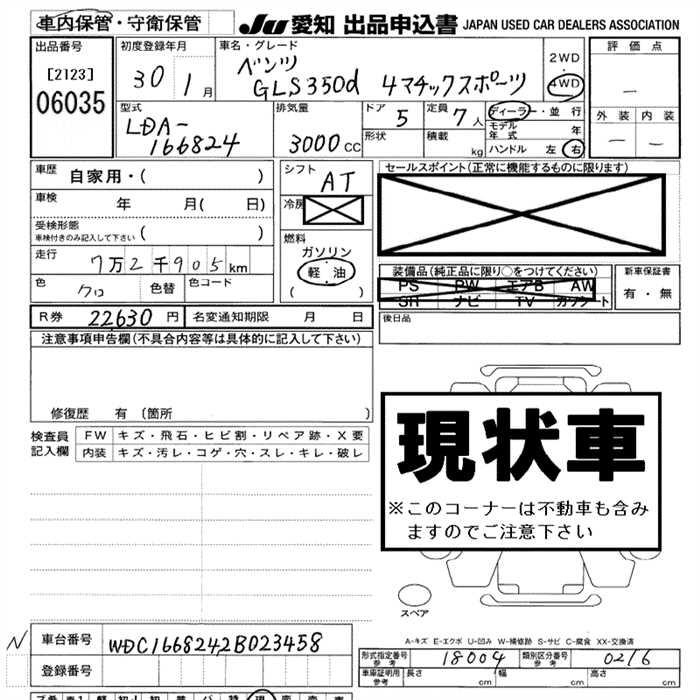 車内保管・守衛保管 JU 愛知 出品申込書 JAPAN USED CAR DEALERS ASSOCIATION
出品番号 初度登録年月 車名・グレード 2WD 評価点
[2123] 30 1月 ベンツ 4WD
06035 GLS350d 4マチックスポーツ －
型式 排気量 ドア 定員 ディーラー・並行 外装 内装
LDA- 5 7人 モデル年式 年 － －
166824 3000CC 形状 積載 kg ハンドル 左 右
車歴 自家用・( ) シフト AT セールスポイント(正常に機能するものに限ります)
車検 年 月( 日) 冷房
受検形態 ( )
車検付きのみ記入して下さい
燃料
走行 7万2千905km ガソリン 装備品(純正品に限り○をつけてください) 新車保証書
色 クロ 色替 色コード 軽油 PS PW エアB AW 有・無
( ) SR ナビ TV カワシート
R券 22630円 名変通知期限 月 日 後日品
注意事項申告欄(不具合内容等は具体的に記入して下さい)
修復歴 有 (箇所 )
現状車
※このコーナーは不動車も含み
ますのでご注意下さい
検査員 FW キズ・飛石・ヒビ割・リペア跡・X要
記入欄 内装 キズ・汚レ・コゲ・穴・スレ・キレ・破レ
スペア
N 車台番号 WDC1668242B023458
A-キズ E-エクボ U-凹み W-補修跡 S-サビ C-腐食 XX-交換済
登録番号
形式指定番号 参考 18004 類別区分番号 参考 0216
車庫証明用 参考 長さ cm 幅 cm 高さ cm